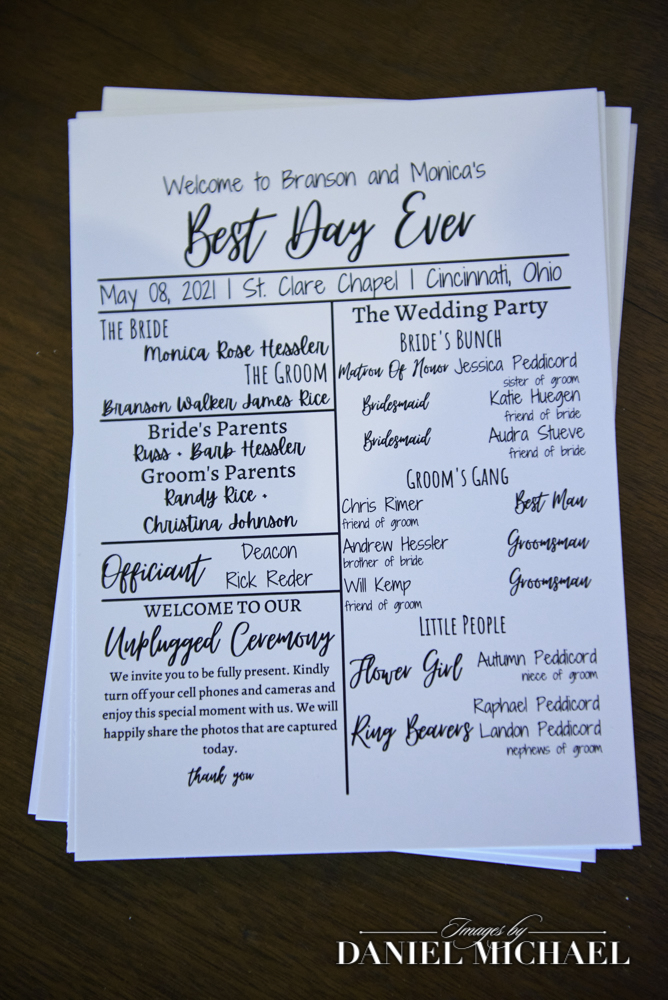 Welcome to Branson and Monica's
Best Day Ever
May 08, 2021 | St. Clare Chapel | Cincinnati, Ohio
The Bride
Monica Rose Hessler
The Groom
Branson Walker James Rice
Bride's Parents
Russ + Barb Hessler
Groom's Parents
Randy Rice +
Christina Johnson
Officiant
Deacon
Rick Reder
WELCOME TO OUR
Unplugged Ceremony
We invite you to be fully present. Kindly
turn off your cell phones and cameras and
enjoy this special moment with us. We will
happily share the photos that are captured
today.
thank you
The Wedding Party
Bride's Bunch
Matron Of Honor Jessica Peddicord
sister of groom
Bridesmaid Katie Huegen
friend of bride
Bridesmaid Audra Stueve
friend of bride
Groom's Gang
Chris Rimer Best Man
friend of groom
Andrew Hessler Groomsman
brother of bride
Will Kemp Groomsman
friend of groom
Little People
Flower Girl Autumn Peddicord
niece of groom
Raphael Peddicord
Ring Bearers Landon Peddicord
nephews of groom
Images by
DANIEL MICHAEL